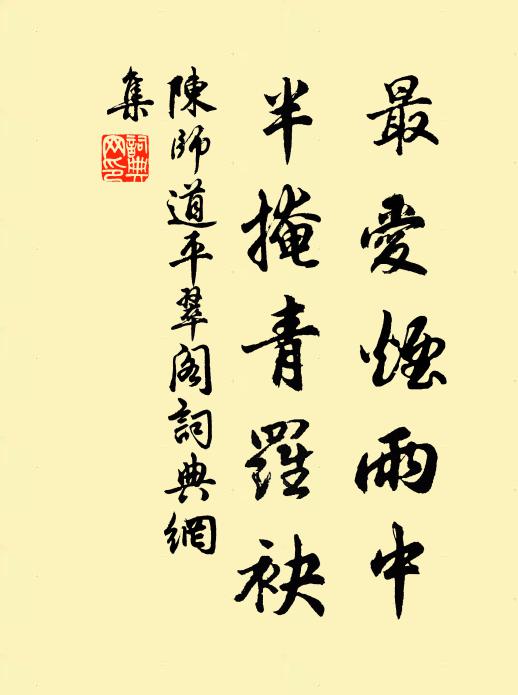 最愛煙雨中
半掩青羅袂
陳師道平翠阁詞典網
集
詞典网印